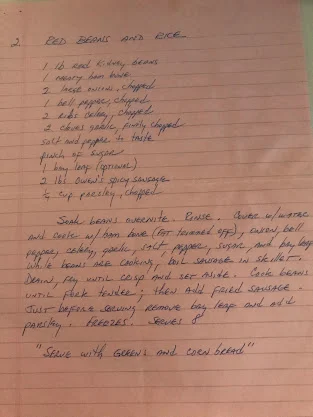 2 RED BEANS AND RICE
1 lb red kidney beans
1 meaty ham bone
2 large onions, chopped
1 bell pepper, chopped
2 ribs celery, chopped
2 cloves garlic, finely chopped
salt and pepper to taste
pinch of sugar
1 bay leaf (optional)
2 lbs Owen's spicy sausage
cup parsley, chopped
Soak beans overnite. Rinse. Cover w/water
and cook w/ham bone (fat trimmed off), onion, bell
pepper, celery, garlic, salt, pepper, sugar, and bay leaf
while beans are cooking, boil sausage in skillet.
Drain, fry until crisp and set aside. Cook beans
until fork tender; then add fried sausage.
Just before serving remove bay leaf and add
parsley. Freezes. Serves 8
"Serve with greens and corn bread"